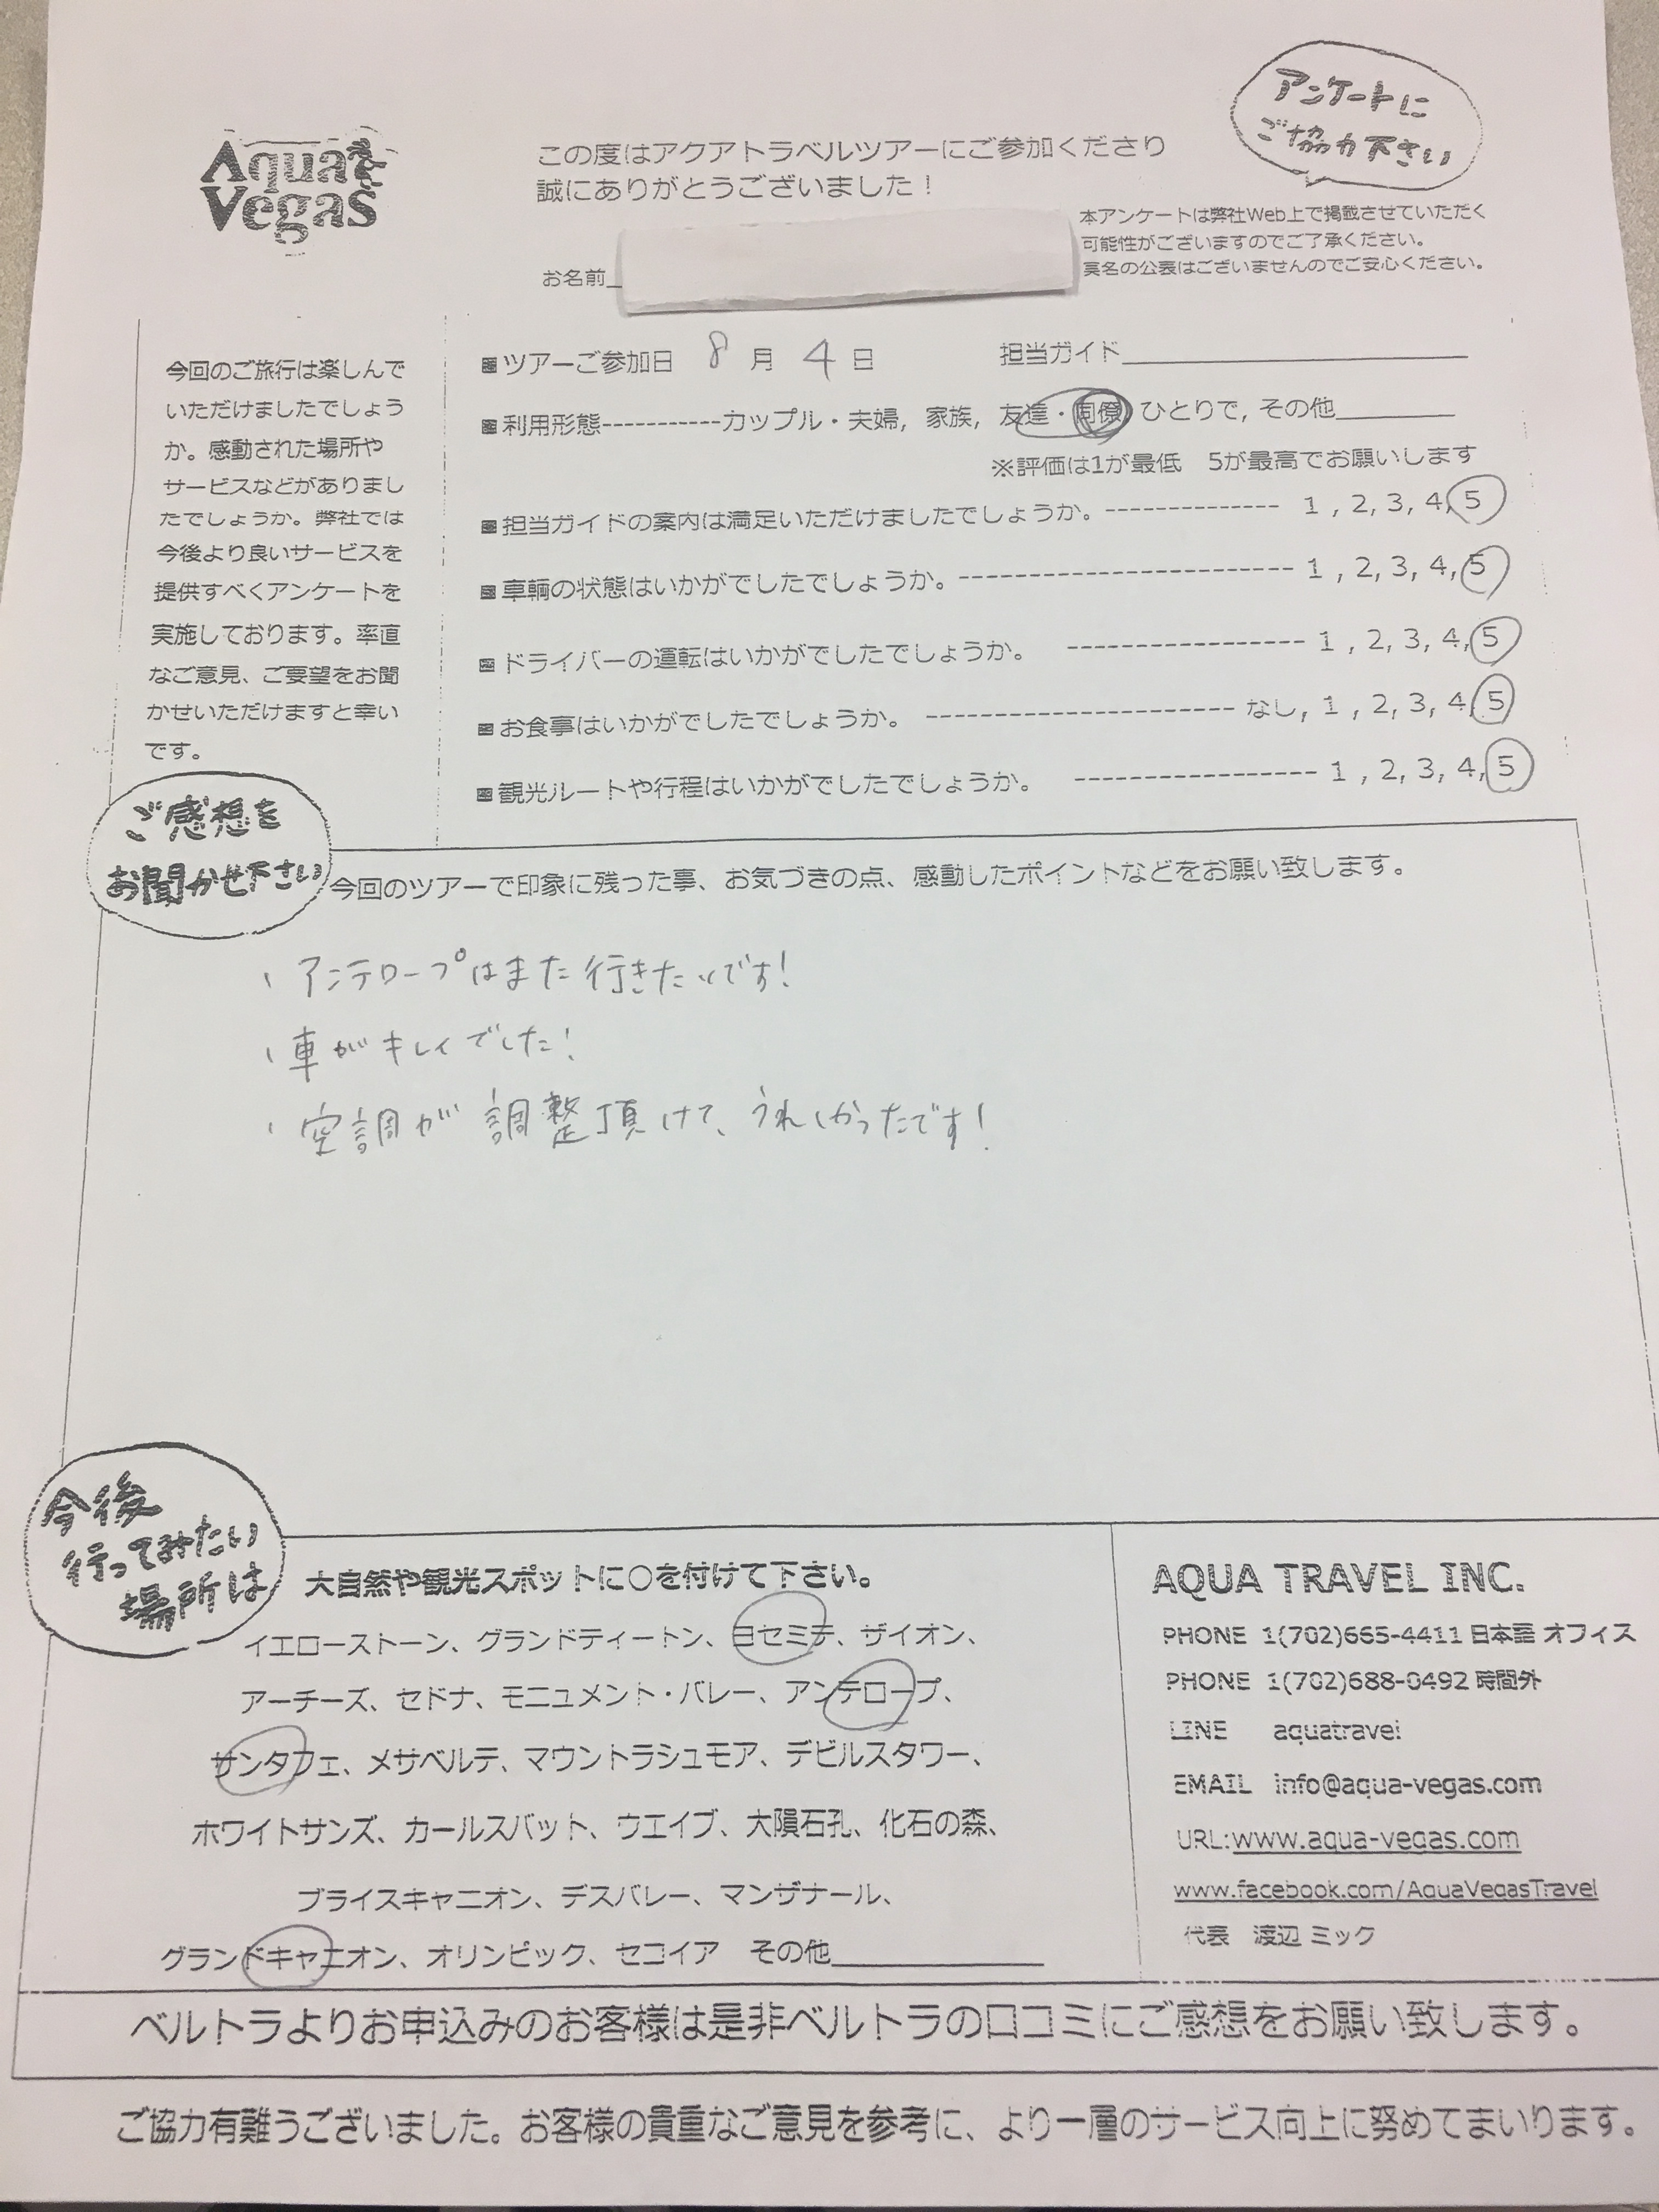 アンケートに
ご協力下さい
Aqua
Vegas
この度はアクアトラベルツアーにご参加くださり
誠にありがとうございました！
本アンケートは弊社Web上で掲載させていただく
可能性がございますのでご了承ください。
実名の公表はございませんのでご安心ください。
お名前
今回のご旅行は楽しんで
いただけましたでしょう
か。感動された場所や
サービスなどがありまし
たでしょうか。弊社では
今後より良いサービスを
提供すべくアンケートを
実施しております。率直
なご意見、ご要望をお聞
かせいただけますと幸い
です。
■ツアーご参加日 8 月 4 日 担当ガイド
■利用形態-----------カップル・夫婦, 家族, 友達・同僚, ひとりで, その他
※評価は1が最低 5が最高でお願いします
■担当ガイドの案内は満足いただけましたでしょうか。-------------- 1 , 2, 3, 4, 5
■車輌の状態はいかがでしたでしょうか。--------------------------- 1 , 2, 3, 4, 5
■ドライバーの運転はいかがでしたでしょうか。 ------------------- 1 , 2, 3, 4, 5
■お食事はいかがでしたでしょうか。 ------------------------- なし, 1 , 2, 3, 4, 5
■観光ルートや行程はいかがでしたでしょうか。 ------------------- 1 , 2, 3, 4, 5
ご感想を
お聞かせ下さい
今回のツアーで印象に残った事、お気づきの点、感動したポイントなどをお願い致します。
・アンテロープはまた行きたいです!
・車がキレイでした!
・空調が調整頂けて、うれしかったです!
今後
行ってみたい
場所は
大自然や観光スポットに○を付けて下さい。
イエローストーン、グランドティートン、ヨセミテ、ザイオン、
アーチーズ、セドナ、モニュメント・バレー、アンテロープ、
サンタフェ、メサベルデ、マウントラシュモア、デビルスタワー、
ホワイトサンズ、カールスバット、ウエイブ、大隕石孔、化石の森、
ブライスキャニオン、デスバレー、マンザナール、
グランドキャニオン、オリンピック、セコイア その他
AQUA TRAVEL INC.
PHONE 1(702)665-4411 日本語 オフィス
PHONE 1(702)688-0492 時間外
LINE aquatravel
EMAIL info@aqua-vegas.com
URL:www.aqua-vegas.com
www.facebook.com/AquaVegasTravel
代表 渡辺 ミック
ベルトラよりお申込みのお客様は是非ベルトラの口コミにご感想をお願い致します。
ご協力有難うございました。お客様の貴重なご意見を参考に、より一層のサービス向上に努めてまいります。